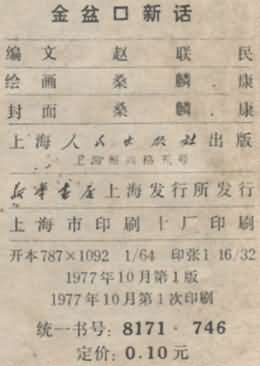 金盆口新话
编文 赵联民
绘画 桑麟康
封面 桑麟康
上海人民出版社出版
上海绍兴路5号
新华书店上海发行所发行
上海市印刷十厂印刷
开本787×1092 1/64 印张1 16/32
1977年10月第1版
1977年10月第1次印刷
统一书号: 8171·746
定价: 0.10元